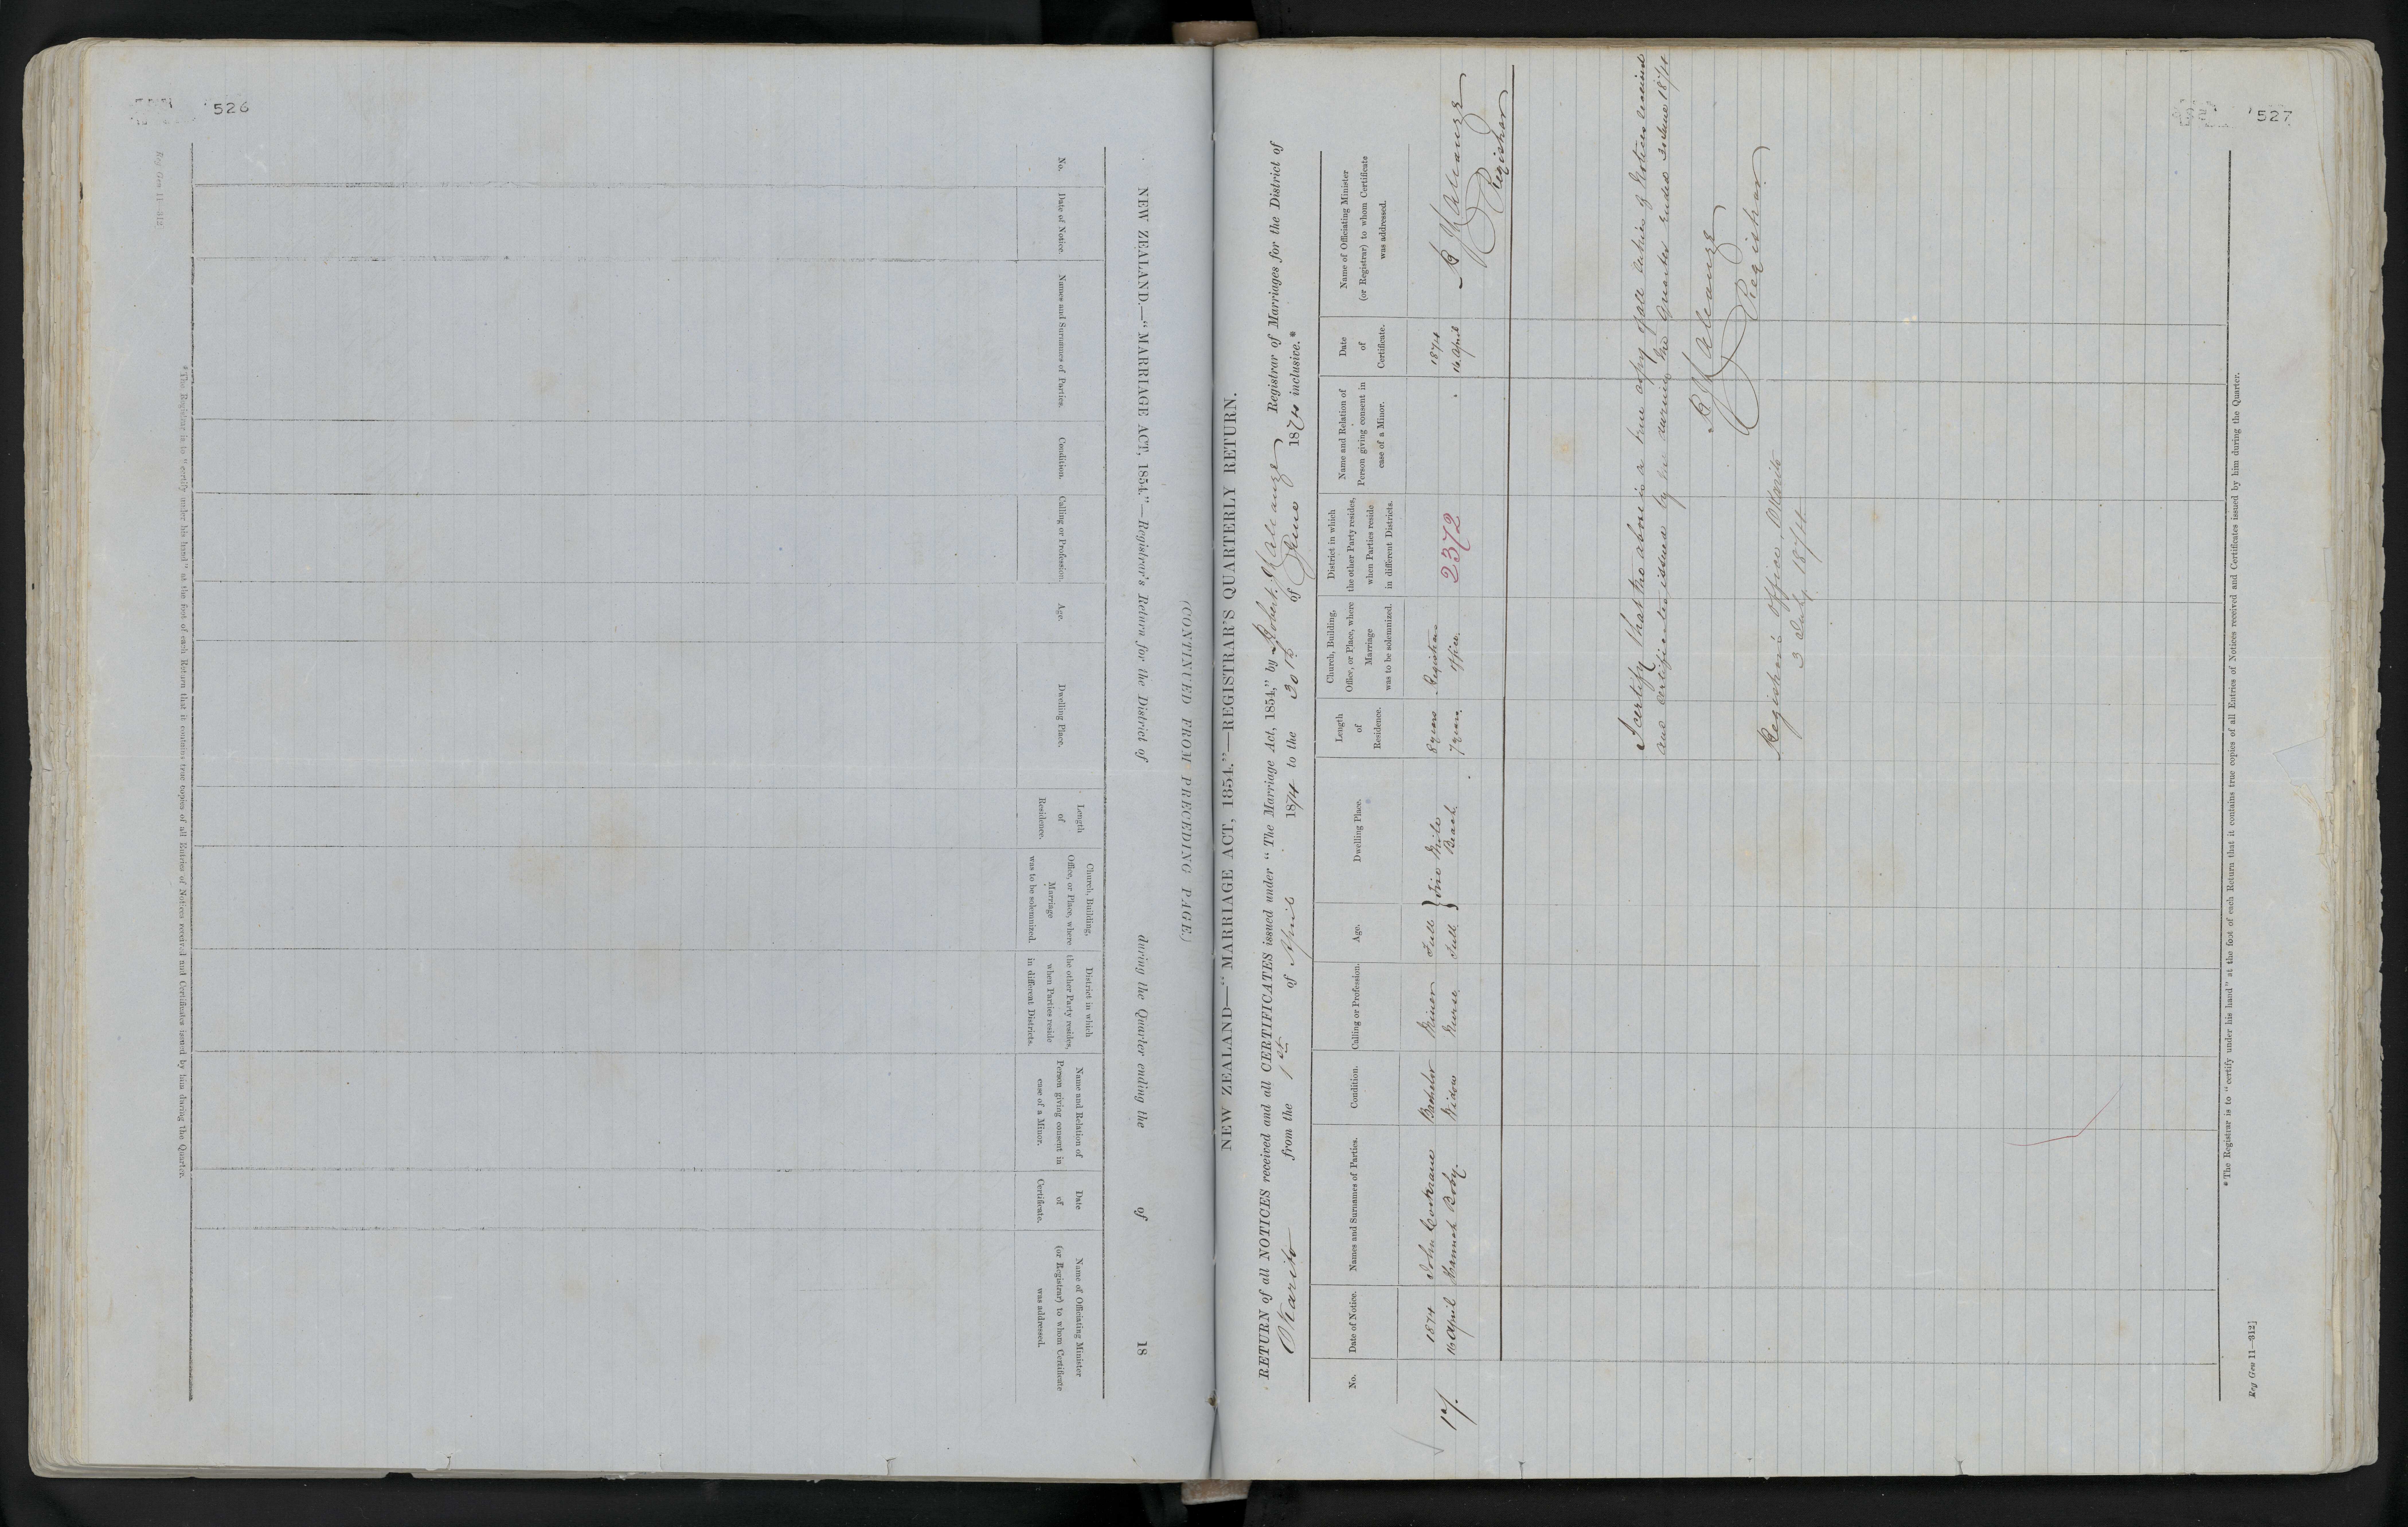 526
Reg Gen 11—312
(CONTINUED FROM PRECEDING PAGE.)
NEW ZEALAND.—"MARRIAGE ACT, 1854."—Registrar's Return for the District of during the Quarter ending the of 18
No.
Date of Notice.
Names and Surnames of Parties.
Condition.
Calling or Profession.
Age.
Dwelling Place.
Length
of
Residence.
Church, Building,
Office, or Place, where
Marriage
was to be solemnized.
District in which
the other Party resides,
when Parties reside
in different Districts.
Name and Relation of
Person giving consent in
case of a Minor.
Date
of
Certificate.
Name of Officiating Minister
(or Registrar) to whom Certificate
was addressed.
*The Registrar is to "certify under his hand" at the foot of each Return that it contains true copies of all Entries of Notices received and Certificates issued by him during the Quarter.
527
NEW ZEALAND—"MARRIAGE ACT, 1854."—REGISTRAR'S QUARTERLY RETURN.
RETURN of all NOTICES received and all CERTIFICATES issued under "The Marriage Act, 1854," by Robert Registrar of Marriages for the District of
Okarito from the 1st of April 1874 to the 30th of June 1874 inclusive.*
No.
Date of Notice.
Names and Surnames of Parties.
Condition.
Calling or Profession.
Age.
Dwelling Place.
Length
of
Residence.
Church, Building,
Office, or Place, where
Marriage
was to be solemnized.
District in which
the other Party resides,
when Parties reside
in different Districts.
Name and Relation of
Person giving consent in
case of a Minor.
Date
of
Certificate.
Name of Officiating Minister
(or Registrar) to whom Certificate
was addressed.
1874 John Cochrane Bachelor Miner Full } Five Mile 8 years Registrars 1874
16 April Hannah Widow Nurse Full } Beach. 7 years. Office. 2372 16 April
Registrar
I certify that the above is a true copy of all entries of Notices received
and Certificates issued by me during the Quarter ended 30 June 1874
Registrar
Registrar's Office, Okarito
3 July 1874
*The Registrar is to "certify under his hand" at the foot of each Return that it contains true copies of all Entries of Notices received and Certificates issued by him during the Quarter.
Reg Gen 11—312]